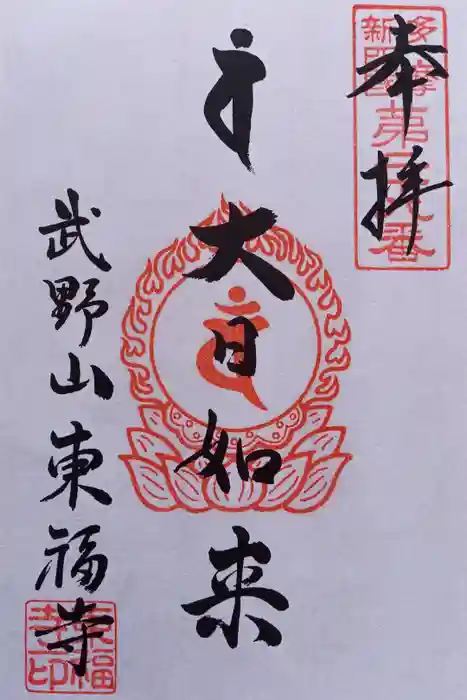 奉拝
多摩
新四国
大日如来
武野山東福寺
東福
寺印